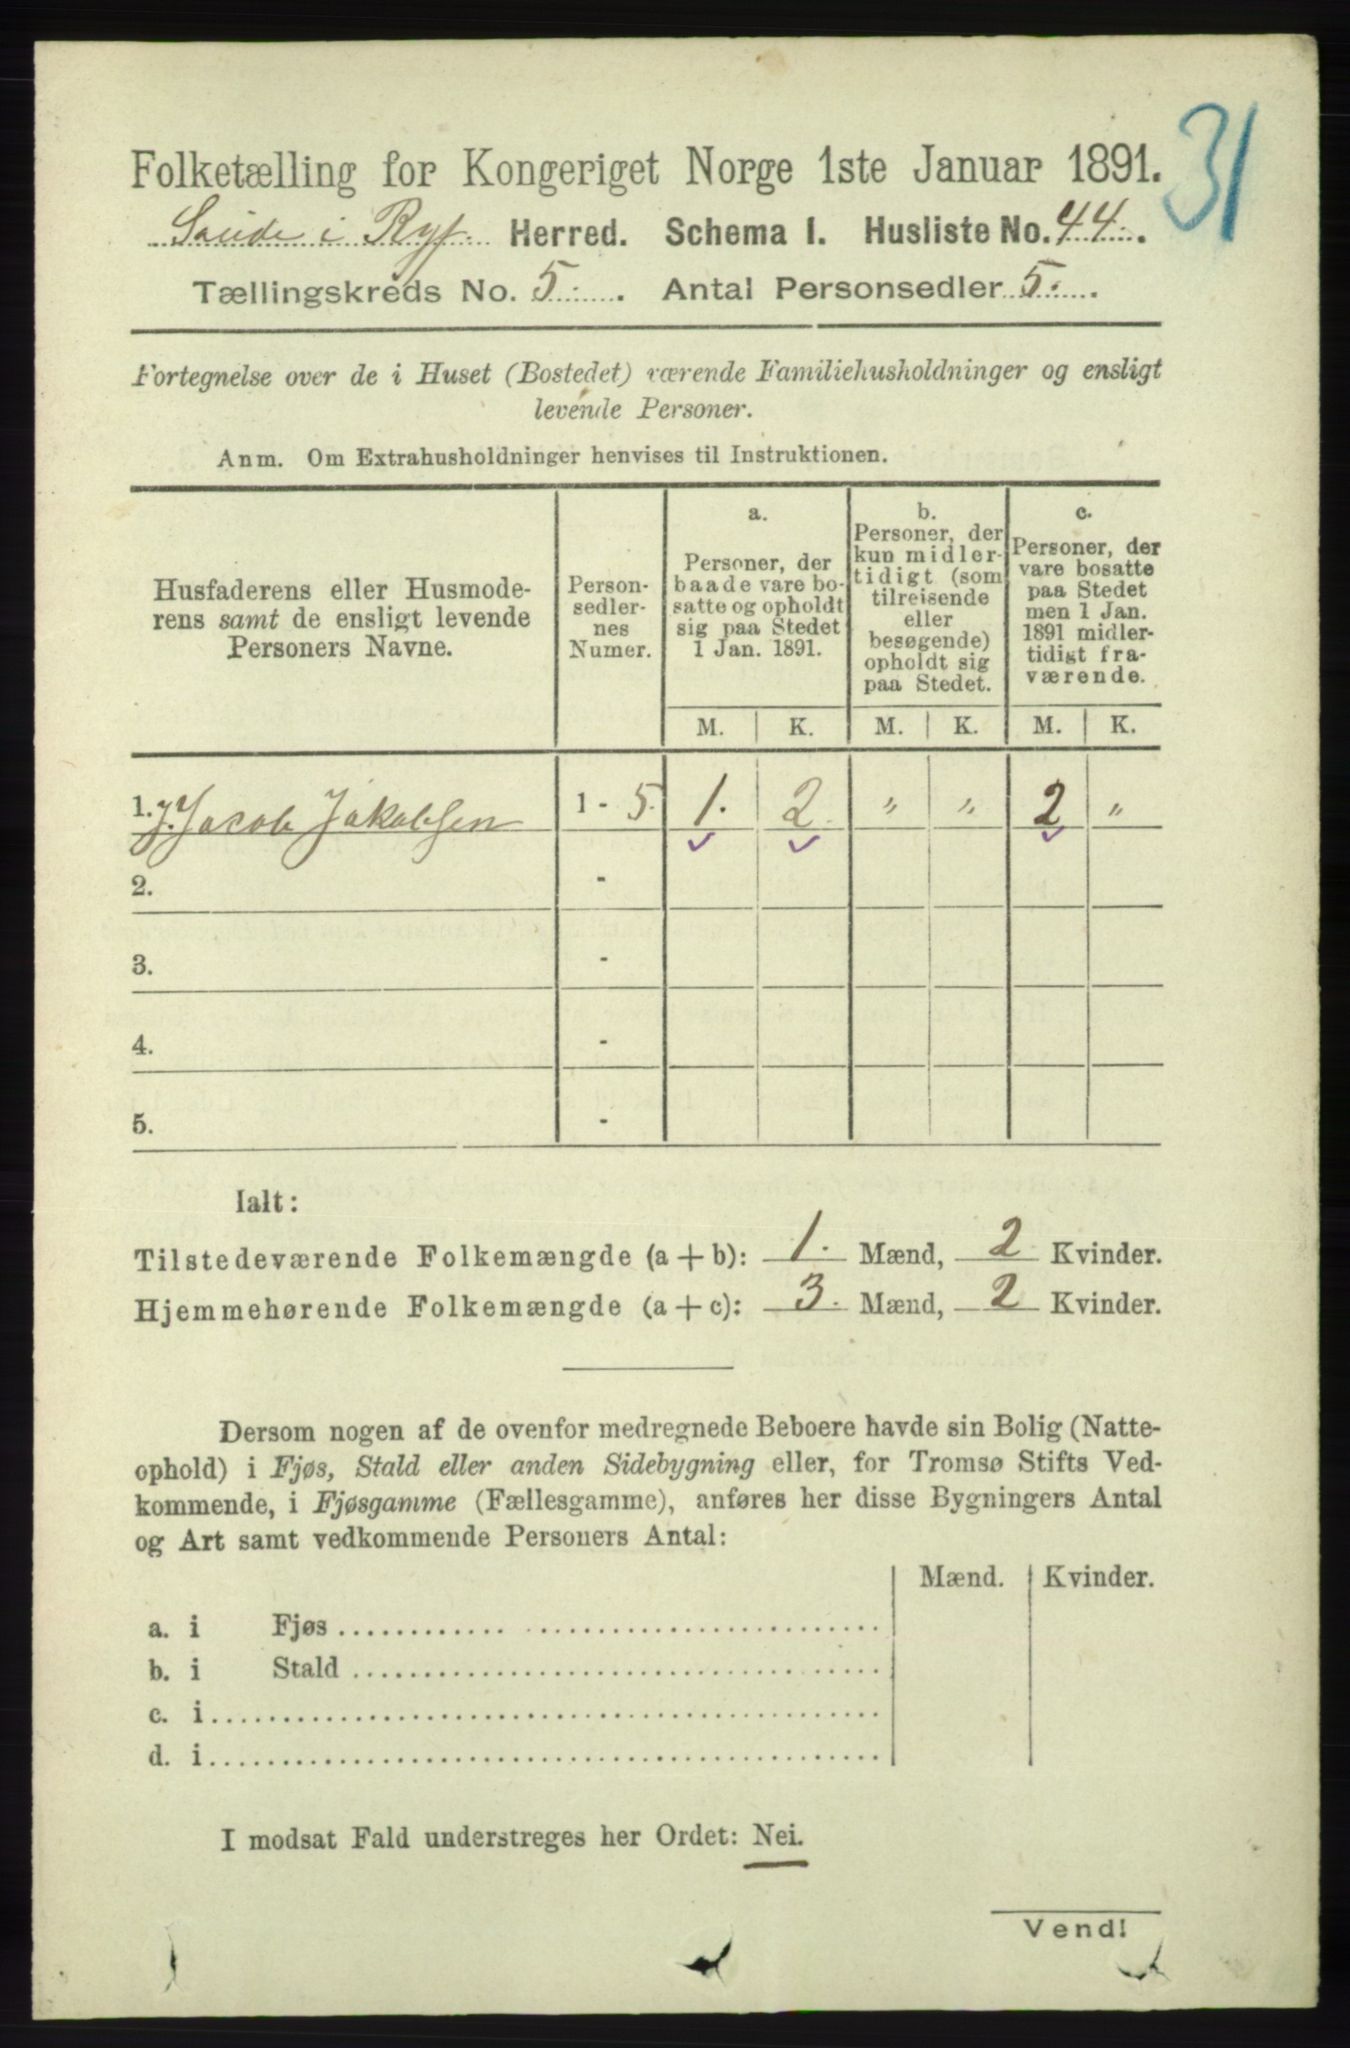 31
Folketælling for Kongeriget Norge 1ste Januar 1891.
Saude i Ryf. Herred. Schema I. Husliste No. 44.
Tællingskreds No. 5. Antal Personsedler 5.
Fortegnelse over de i Huset (Bostedet) værende Familiehusholdninger og ensligt
levende Personer.
Anm. Om Extrahusholdninger henvises til Instruktionen.
Husfaderens eller Husmode-
rens samt de ensligt levende
Personers Navne.
Person-
sedler-
nes
Numer.
a.
Personer, der
baade vare bo-
satte og opholdt
sig paa Stedet
1 Jan. 1891.
b.
Personer, der
kun midler-
tidigt (som
tilreisende
eller
besøgende)
opholdt sig
paa Stedet.
c.
Personer, der
vare bosatte
paa Stedet
men 1 Jan.
1891 midler-
tidigt fra-
værende.
M. K. M. K. M. K.
1. J. Jacob Jakobsen 1 - 5. 1. 2. " " 2 "
2. -
3. -
4. -
5. -
Ialt:
Tilstedeværende Folkemængde (a + b): 1. Mænd, 2 Kvinder.
Hjemmehørende Folkemængde (a + c): 3. Mænd, 2 Kvinder.
Dersom nogen af de ovenfor medregnede Beboere havde sin Bolig (Natte-
ophold) i Fjøs, Stald eller anden Sidebygning eller, for Tromsø Stifts Ved-
kommende, i Fjøsgamme (Fællesgamme), anføres her disse Bygningers Antal
og Art samt vedkommende Personers Antal:
Mænd. Kvinder.
a. i Fjøs
b. i Stald
c. i
d. i
I modsat Fald understreges her Ordet: Nei.
Vend!